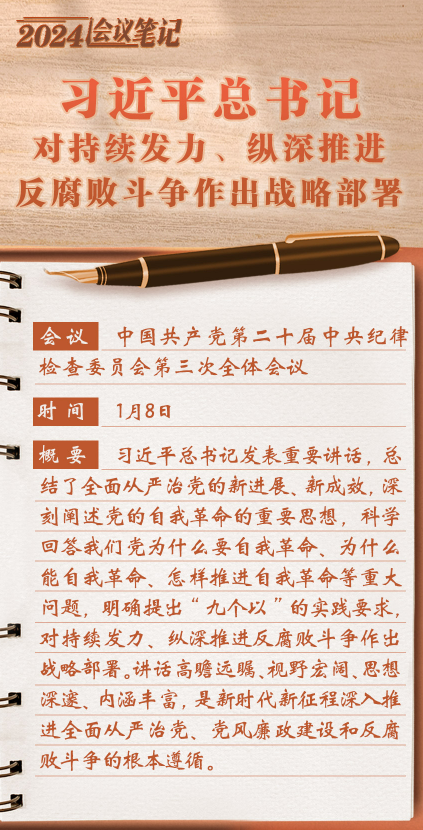 2024会议笔记
习近平总书记
对持续发力、纵深推进
反腐败斗争作出战略部署
会议 中国共产党第二十届中央纪律
检查委员会第三次全体会议
时间 1月8日
概要 习近平总书记发表重要讲话，总
结了全面从严治党的新进展、新成效，深
刻阐述党的自我革命的重要思想，科学
回答我们党为什么要自我革命、为什么
能自我革命、怎样推进自我革命等重大
问题，明确提出“九个以”的实践要求，
对持续发力、纵深推进反腐败斗争作出
战略部署。讲话高瞻远瞩、视野宏阔、思想
深邃、内涵丰富，是新时代新征程深入推
进全面从严治党、党风廉政建设和反腐
败斗争的根本遵循。